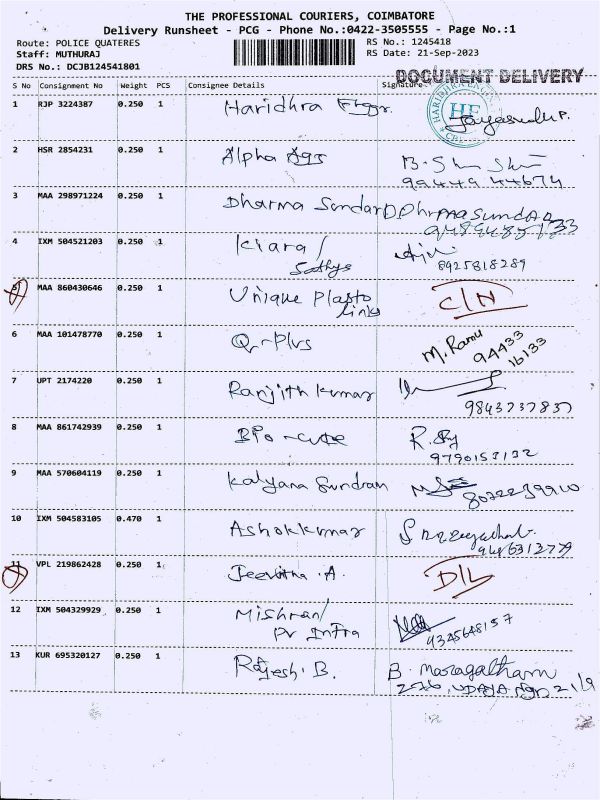 THE PROFESSIONAL COURIERS, COIMBATORE
Delivery Runsheet - PCG - Phone No.:0422-3505555 - Page No.:1
Route: POLICE QUATERES
RS No.: 1245418
Staff: MUTHURAJ
RS Date: 21-Sep-2023
DRS No.: DCJB124541801
DOCUMENT DELIVERY
S No Consignment No Weight PCS Consignee Details Signature
1 RJP 3224387 0.250 1 Haridhra
HE
2 HSR 2854231 0.250 1 Alpha Ags
99449 44674
3 MAA 298971224 0.250 1 Dharma Sundar D.Dharmasundar
4 IXM 504521203 0.250 1 Kiara /
Sathys
8925818289
5 MAA 860430646 0.250 1 Unique Plasto C/N
links
6 MAA 101478770 0.250 1 Q-Plus M. Ramu
94433
16133
7 UPT 2174220 0.250 1 Ranjith Kumar
9843737837
8 MAA 861742939 0.250 1 Bio-cure
9790153132
9 MAA 570604119 0.250 1 Kalyana Sundram
10 IXM 504583105 0.470 1 Ashokkumar
9486312779
11 VPL 219862428 0.250 1 Jeevitha .A D/L
12 IXM 504329929 0.250 1 Mishran/
Pv Infra
9345648157
13 KUR 695320127 0.250 1 Rajesh. B. B. Maragatham
21/9